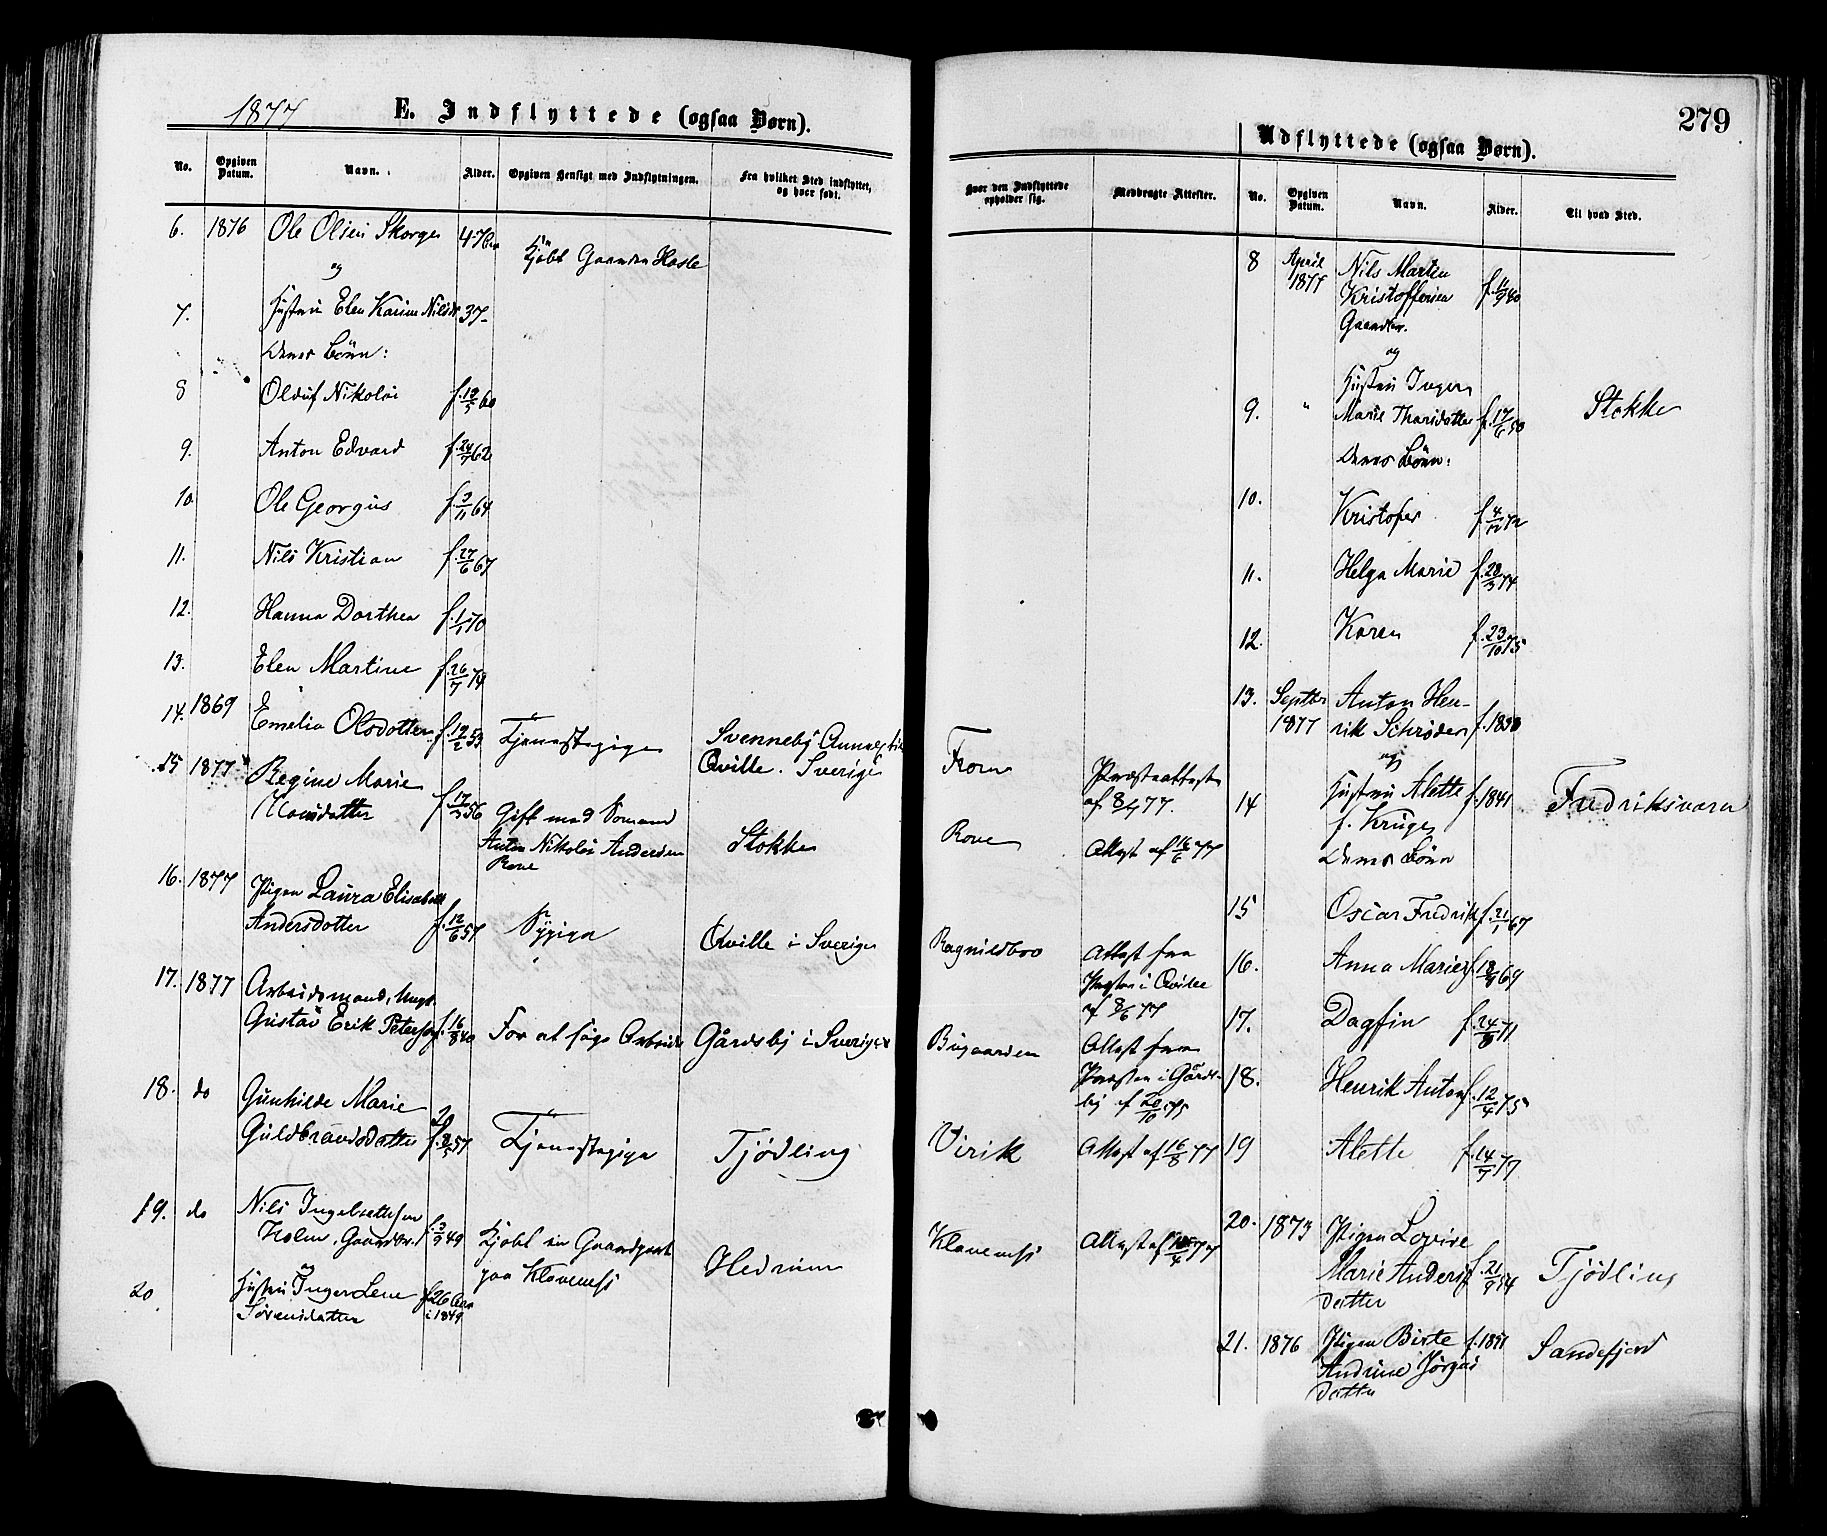 1877
E. Indflyttede (ogsaa Børn).
No.
Opgiven Datum.
Navn.
Alder.
Opgiven Hensigt med Indflytningen.
Fra hvilket Sted indflyttet, og hvor født.
6. 1876 Ole Olsen Skorge 47 Aar
og
Kjøbt Gaarden Hasle
7. Hustru Elen Karine Nilsdt 37
Deres Børn:
8 Oluf Nikolai f. 13/5 60
9. Anton Edvard f. 24/7 62
10. Ole Georgius f. 3/11 64
11. Nils Kristian f. 27/6 67
12. Hanna Dorthea f. 1/1 70
13. Elen Martine f. 26/7 74
14. 1869 Emelia Olsdotter f. 19/2 53 Tjenestepige Svenneby Annex til
Qville. Sverige
15 1877 Regine Marie
Hansdatter f. 17/5 56 Gift med Sømand
Anton Nikolai Andersen
Rove
Stokke
16. 1877 Pigen Laura Elisabeth
Andersdotter f. 12/6 57 Sypige Qville i Sverige
17. 1877 Arbeidsmand, Ungk.
Gustav Erik Peterson f. 16/8 40 For at søge Arbeide Gårdsby i Sverige
18. do Gunhilde Marie
Guldbrandsdatter f. 57 Tjenestepige Tjødling
19. do Nils Ingebrethsen
Holm, Gaardbr. f. 3/9 49 Kjøbt en Gaardpart
paa Klavenæss
Hedrum
og
20 Hustru Inger Lene
Sørensdatter f. 26 Aar
i 1849
279
Udflyttede (ogsaa Børn).
Hvor den Indflyttede opholder sig.
Medbragte Attester.
No.
Opgiven Datum.
Navn.
Alder.
Til hvad Sted.
Fron Præsteattest
af 8/4 77.
Rove Attest af 16/6 77
Ragnildbro Attest fra
Præsten i Qville
af 8/6 77
Bugaarden Attest fra
Præsten i Gårds-
by af 20/10 75
Virik Attest af 16/8 77
Klavenæss Attest af 77
8 April
1877 Nils Martin
Kristoffersen
Gaardbr. f. 11/9 40
og
9. " Hustru Inger
Marie Thorsdatter f. 17/6 50 Stokke
Deres Børn:
10. Kristofer f. 4/12 72
11. Helga Marie f. 20/3 74
12. Karen f. 23/10 75
13. Septbr
1877 Anton Hen-
rik Schrøder f. 1838
og
14 Hustru Alette f. 1841 Fredriksværn
f. Kruge
Deres Børn
15 Oscar Fredrik f. 21/1 67
16. Anna Marie f. 18/9 69
17. Dagfin f. 24/8 71
18. Henrik Anton f. 12/4 75
19 Alette f. 14/7 77.
20. 1873 Pigen Lovise
Marie Anders-
datter f. 21/9 54 Tjødling
21. 1876 Pigen Birte f. 1851 Sandefjord
Andrine Jørgens
datter